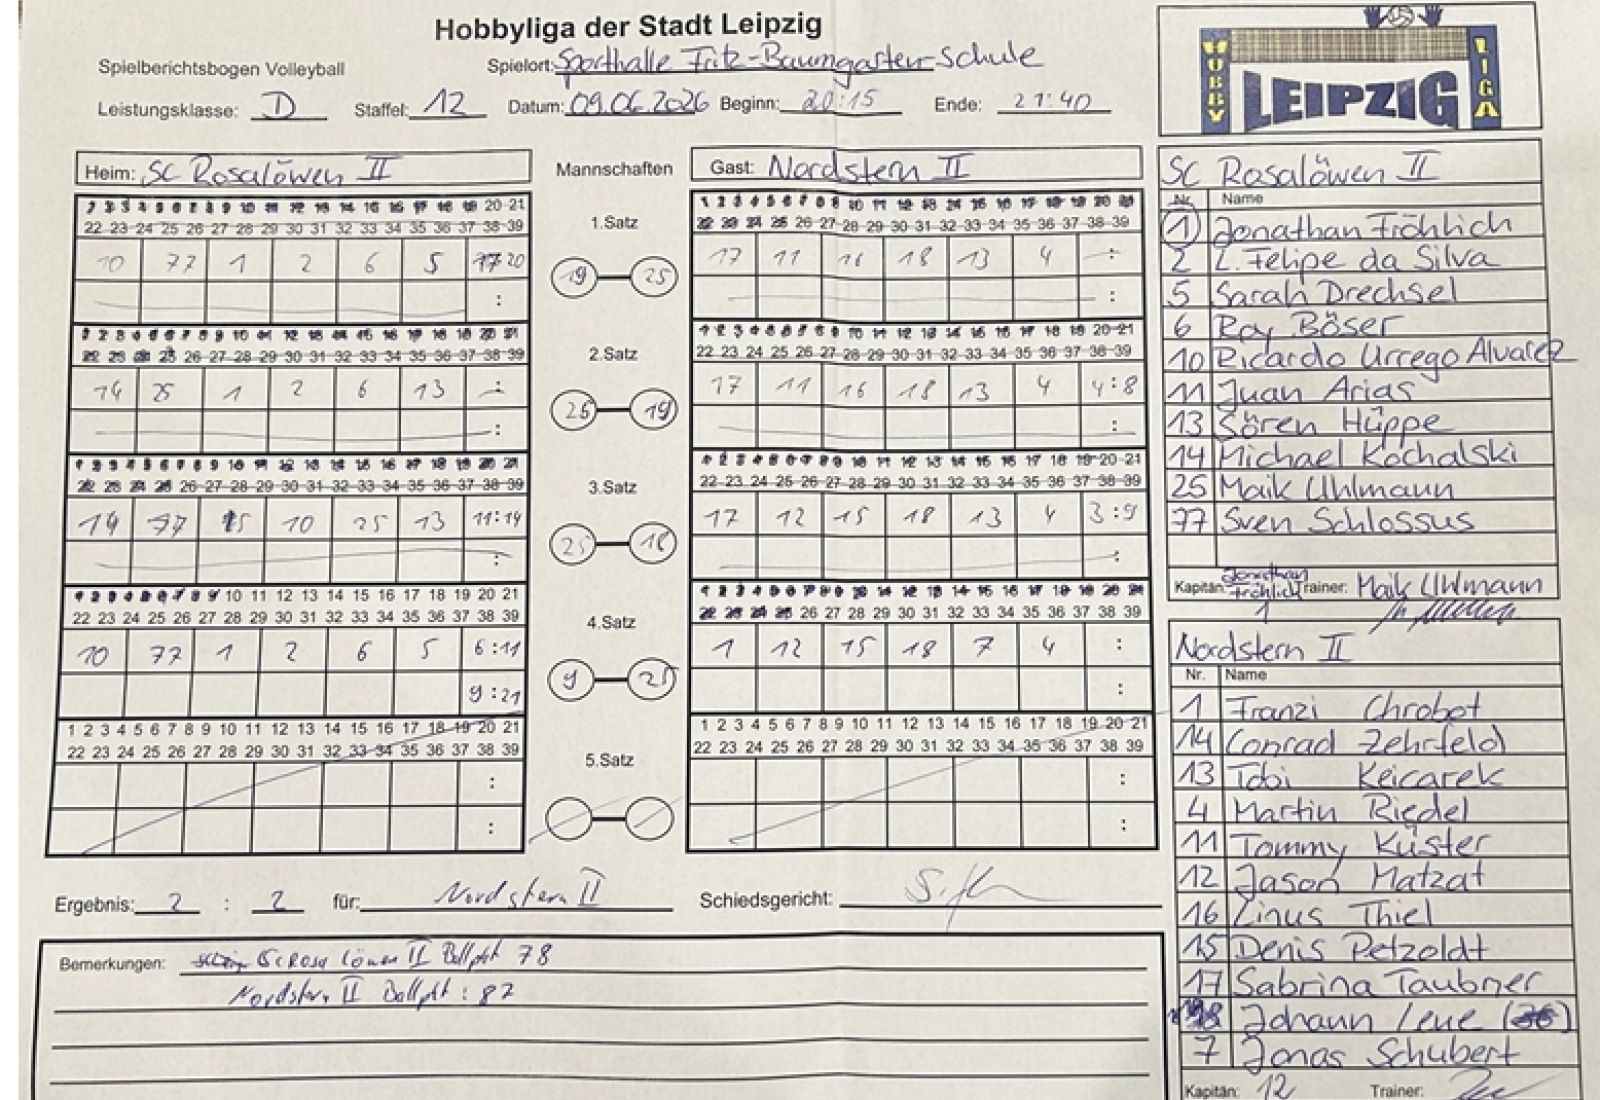 Hobbyliga der Stadt Leipzig
Spielberichtsbogen Volleyball
Spielort: Sporthalle Fritz-Baumgarten-Schule
Leistungsklasse: D Staffel: 12 Datum: 09.06.2026 Beginn: 20:15 Ende: 21:40
HOBBY LEIPZIG LIGA
Heim: SC Rosalöwen II Mannschaften Gast: Nordstern II
1 2 3 4 5 6 7 8 9 10 11 12 13 14 15 16 17 18 19 20 21
22 23 24 25 26 27 28 29 30 31 32 33 34 35 36 37 38 39
10 77 1 2 6 5 20
:
1.Satz
19 25
1 2 3 4 5 6 7 8 9 10 11 12 13 14 15 16 17 18 19 20 21
22 23 24 25 26 27 28 29 30 31 32 33 34 35 36 37 38 39
17 11 16 18 13 4 :
:
1 2 3 4 5 6 7 8 9 10 11 12 13 14 15 16 17 18 19 20 21
22 23 24 25 26 27 28 29 30 31 32 33 34 35 36 37 38 39
14 25 1 2 6 13 :
:
2.Satz
19
1 2 3 4 5 6 7 8 9 10 11 12 13 14 15 16 17 18 19 20 21
22 23 24 25 26 27 28 29 30 31 32 33 34 35 36 37 38 39
17 11 16 18 13 4 4:8
:
1 2 3 4 5 6 7 8 9 10 11 12 13 14 15 16 17 18 19 20 21
22 23 24 25 26 27 28 29 30 31 32 33 34 35 36 37 38 39
14 77 10 25 13 11:14
:
3.Satz
25 18
1 2 3 4 5 6 7 8 9 10 11 12 13 14 15 16 17 18 19 20 21
22 23 24 25 26 27 28 29 30 31 32 33 34 35 36 37 38 39
17 12 15 18 13 4 3:9
:
1 2 3 4 5 6 7 8 9 10 11 12 13 14 15 16 17 18 19 20 21
22 23 24 25 26 27 28 29 30 31 32 33 34 35 36 37 38 39
10 77 1 2 6 5 6:11
9:21
4.Satz
9 25
1 2 3 4 5 6 7 8 9 10 11 12 13 14 15 16 17 18 19 20 21
22 23 24 25 26 27 28 29 30 31 32 33 34 35 36 37 38 39
1 12 15 18 7 4 :
:
1 2 3 4 5 6 7 8 9 10 11 12 13 14 15 16 17 18 19 20 21
22 23 24 25 26 27 28 29 30 31 32 33 34 35 36 37 38 39
:
:
5.Satz
1 2 3 4 5 6 7 8 9 10 11 12 13 14 15 16 17 18 19 20 21
22 23 24 25 26 27 28 29 30 31 32 33 34 35 36 37 38 39
:
:
Ergebnis: 2 : 2 für: Nordstern II Schiedsgericht:
Bemerkungen: SC Rosalöwen II Ballpkt 78
Nordstern II Ballpkt: 87
SC Rosalöwen II
Nr. Name
1 Jonathan Fröhlich
2 L. Felipe da Silva
5 Sarah Drechsel
6 Roy Böser
10 Ricardo Urrego Alvarez
11 Juan Arias
13 Sören Hüppe
14 Michael Kochalski
25 Maik Uhlmann
77 Sven Schlossus
Kapitän: Jonathan Fröhlich Trainer: Maik Uhlmann
1
Nordstern II
Nr. Name
1 Franzi Chrobot
14 Conrad Zehrfeld
13 Tobi Keicarek
4 Martin Riedel
11 Tommy Küster
12 Jason Matzat
16 Linus Thiel
15 Denis Petzoldt
17 Sabrina Taubner
18 Johann Leue
7 Jonas Schubert
Kapitän: 12 Trainer: